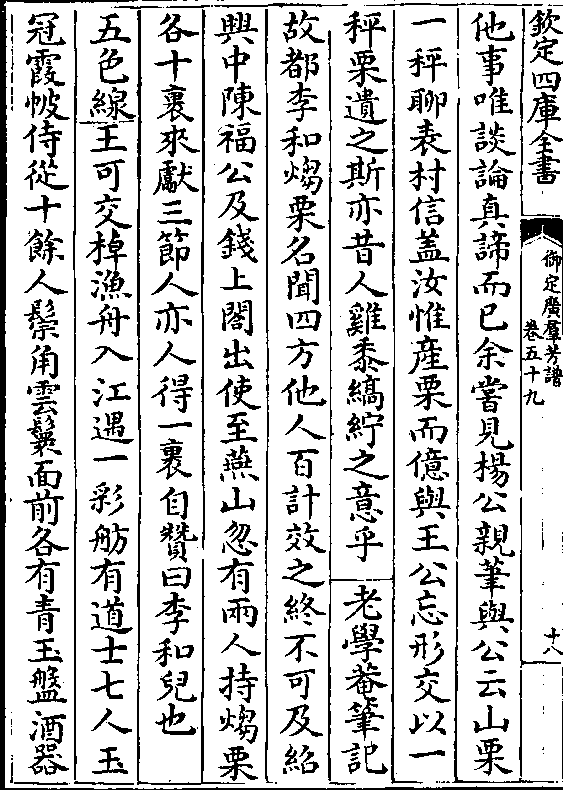 欽定四庫全書
御定廣羣芳譜
卷五十九
十八
他事唯談論真諦而已余嘗見楊公親筆與公云山栗
一秤聊表村信蓋汝惟産栗而億與王公忘形交以一
秤栗遺之斯亦昔人雞黍縞紵之意乎 老學菴筆記
故都李和煼栗名聞四方他人百計效之終不可及紹
興中陳福公及錢上閣出使至燕山忽有兩人持煼栗
各十裹來獻三節人亦人得一裹自贊曰李和兒也
五色線王可交棹漁舟入江遇一彩舫有道士七人玉
冠霞帔侍從十餘人鬃角雲鬟面前各有青玉盤酒器